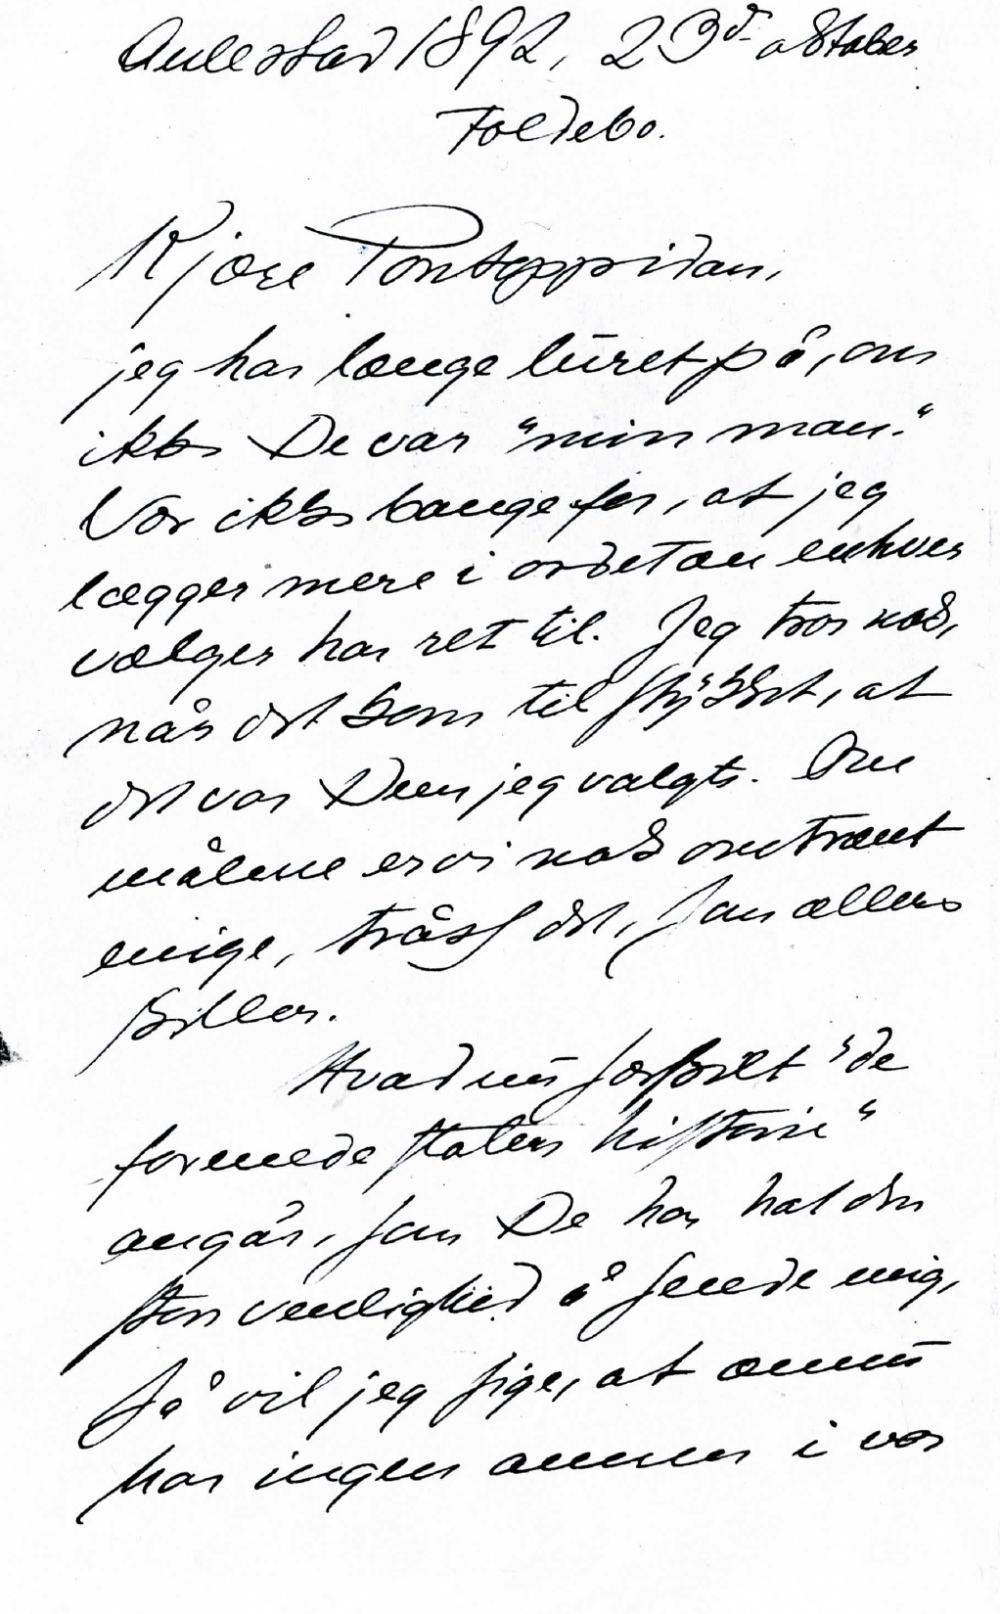 Aulestad 1892, 23d oktober
Foldebo.
Kjære Pontoppidan,
jeg har længe luret på, om
ikke De var "min man."
Vær ikke bange for, at jeg
lægger mere i ordet æn enhver
vælger har ret til. Jeg tror nok,
når det kom til stykket, at
det var Dem jeg valgte. Om
målene er vi nok omtrænt
enige, tråss det, som ællers
skiller.
Hvad nu særskilt "de
formede staters historie"
angår, som De har hat den
stor venlighed å sende mig,
så vil jeg sige, at ænnu
har ingen annen i vor